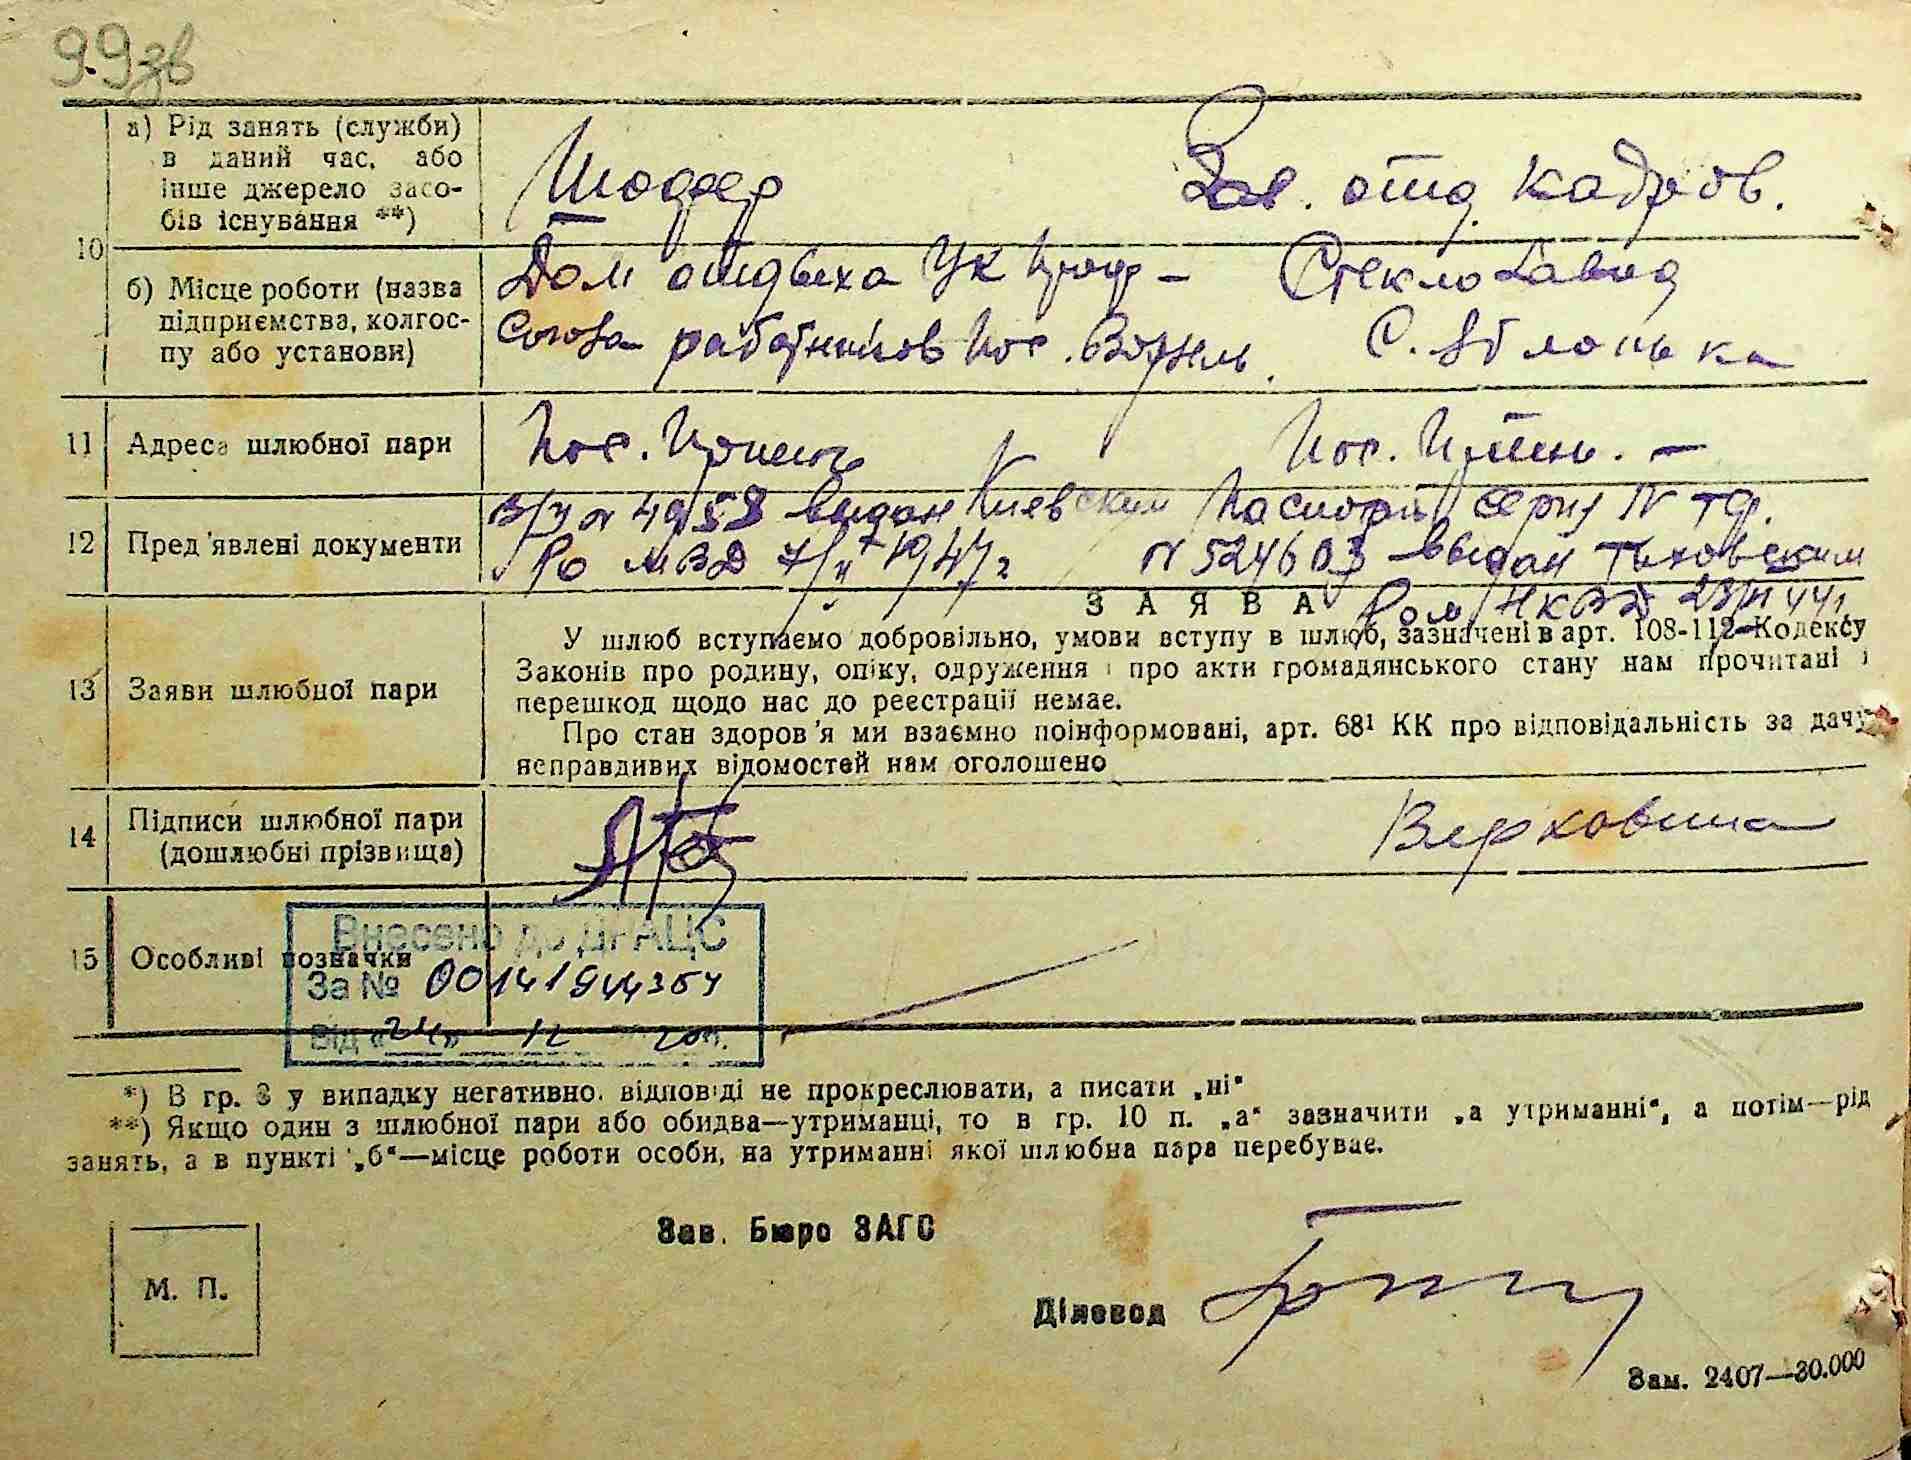 99 зв
а) Рід занять (служби) в даний час, або інше джерело засобів існування **)
Шофер
Зав. отд. кадров.
10
б) Місце роботи (назва підприємства, колгоспу або установи)
Дом отдыха УК Проф-
Союза работников пос. Ворзель.
Стеклозавод
С. Яблонька
11 Адреса шлюбної пари
пос. Ирпень
пос. Ирпень. —
12 Пред'явлені документи
В/у № 4958 выдан Киевским
РО МВД 7/II 1947г
Паспорт серия IV ТФ.
N 524603 выдан
Ром НКВД
ЗАЯВА
13 Заяви шлюбної пари
У шлюб вступаємо добровільно, умови вступу в шлюб, зазначені в арт. 108-112 Кодексу
Законів про родину, опіку, одруження і про акти громадянського стану нам прочитані і
перешкод щодо нас до реєстрації немає.
Про стан здоров'я ми взаємно поінформовані, арт. 68¹ КК про відповідальність за дачу
неправдивих відомостей нам оголошено
14 Підписи шлюбної пари
(дошлюбні прізвища)
Верховина
15 Особливі позначки
Внесено до ДРАЦС
За № 00141944354
Від «24» 12 20
*) В гр. 8 у випадку негативно. відповіді не прокреслювати, а писати „ні“
**) Якщо один з шлюбної пари або обидва—утриманці, то в гр. 10 п. „а“ зазначити „а утриманні“, а потім—рід
занять, а в пункті „б“—місце роботи особи, на утриманні якої шлюбна пара перебуває.
Зав. Бюро ЗАГС
М. П.
Діловод
Зам. 2407—30.000